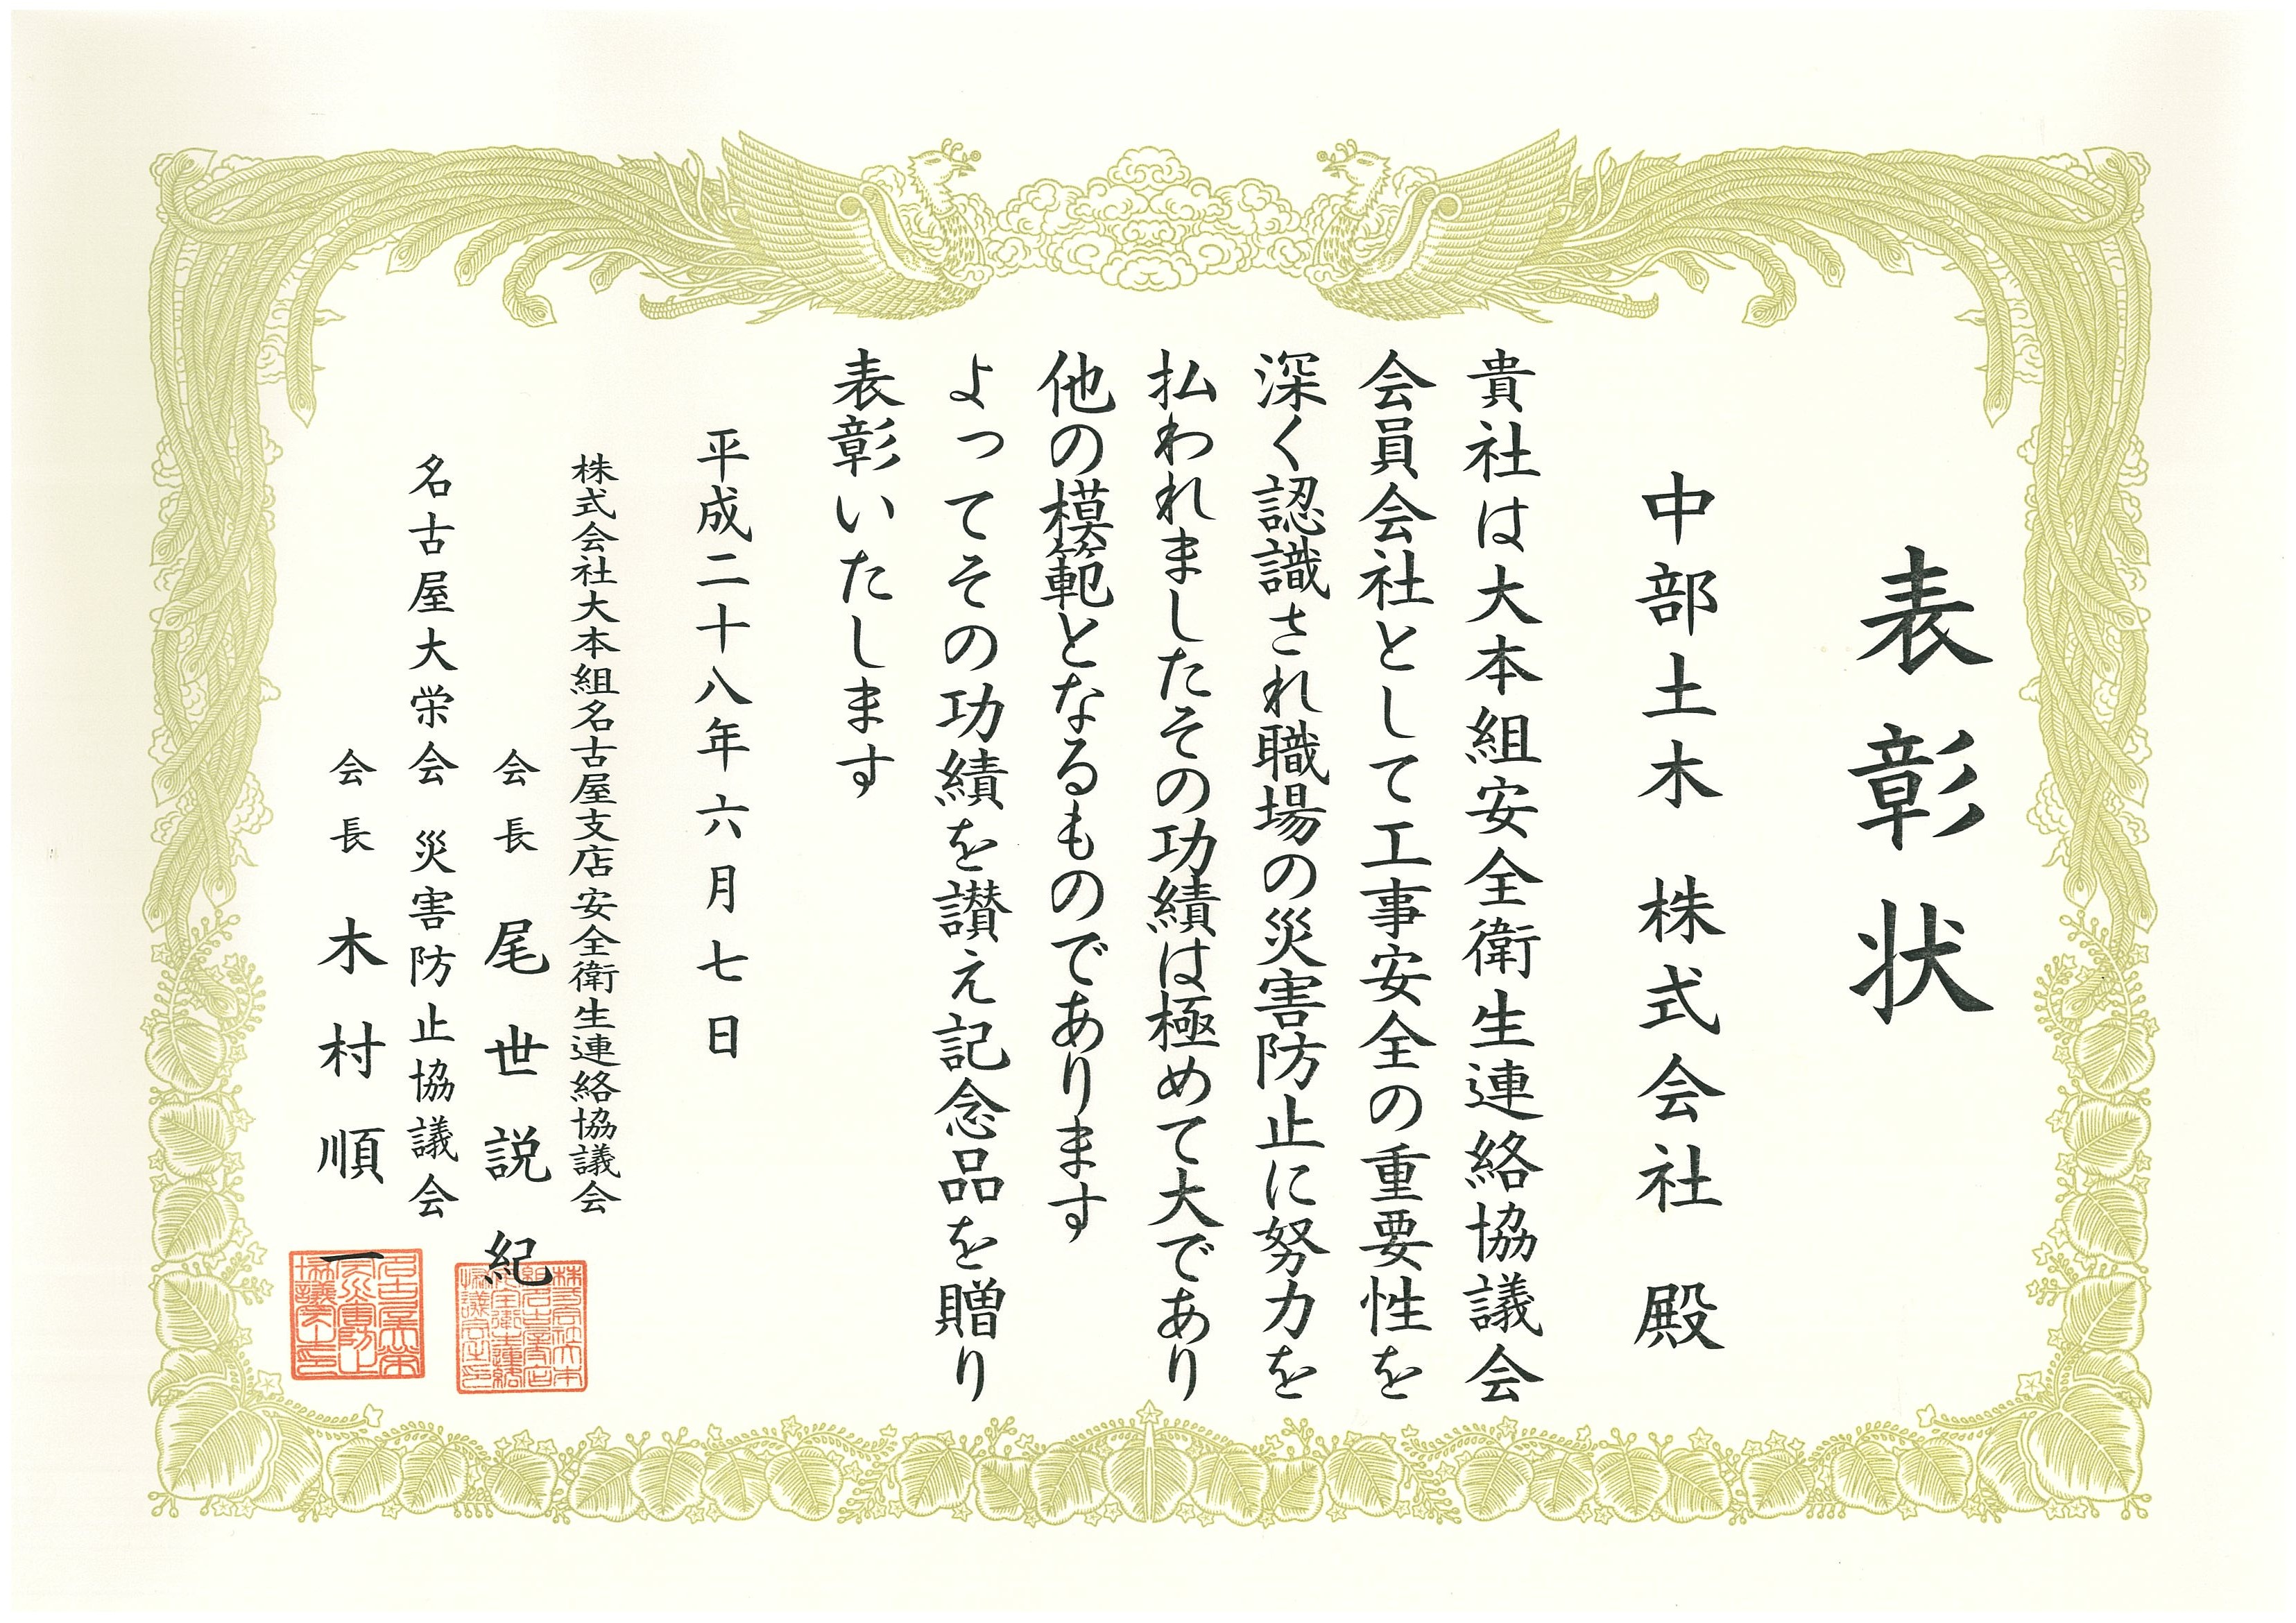 表彰状
中部土木 株式会社 殿
貴社は大本組安全衛生連絡協議会
会員会社として工事安全の重要性を
深く認識され職場の災害防止に努力を
払われましたその功績は極めて大であり
他の模範となるものであります
よってその功績を讃え記念品を贈り
表彰いたします
平成二十八年六月七日
株式会社大本組名古屋支店安全衛生連絡協議会
会長 尾世説紀
名古屋大栄会 災害防止協議会
会長 木村順一